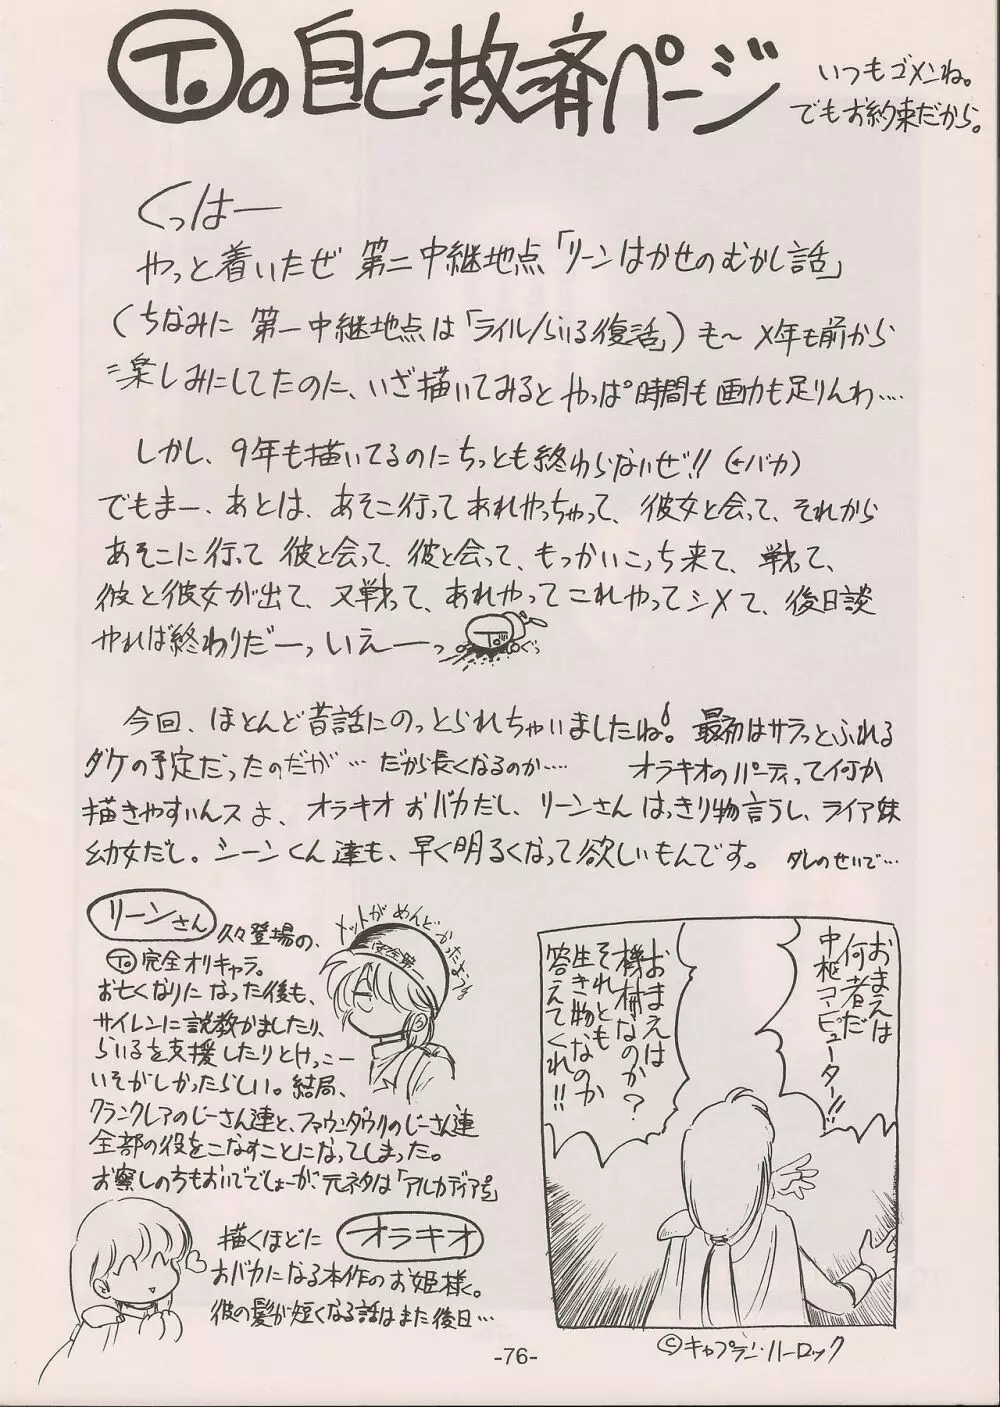 T.の自己救済ページ
いつもゴメンね。
でもお約束だから。
くっはー
やっと着いたぜ 第二中継地点「リーンはかせのむかし話」
(ちなみに 第一中継地点は「ライル/らいる復活」) も〜 X年も前から
楽しみにしてたのに、いざ描いてみると やっぱ時間も画力も足りんわ‥‥
しかし、9年も描いてるのにちっとも終わらないぜ!! (←バカ)
でもまー、あとは、あそこ行って あれやっちゃって、彼女と会って、それから
あそこに行って 彼と会って、彼と会って、もっかいこっち来て、戦って、
彼と彼女が出て、又戦って、あれやって これやって シメて、後日談
やれば終わりだーっ いえーーっ
T.
ぐっ
今回、ほとんど昔話にのっとられちゃいましたね! 最初はサラっとふれる
ダケの予定だったのだが… だから長くなるのか‥‥ オラキオのパーティって何か
描きやすいんスよ、オラキオ おバカだし、リーンさん はっきり物言うし、ライア妹
幼女だし。シーンくん達も、早く明るくなって欲しいもんです。 ダレのせいで…
リーンさん
久々登場の、
T.完全オリキャラ。
お亡くなりになった後も、
サイレンに説教かましたり、
らいるを支援したりとけっこー
いそがしかったらしい。結局、
クランクレアのじーさん達と、ファウンダウリのじーさん達
全部の役をこなすことになってしまった。
お察しの方もおいででしょーが、元ネタは「アルカディア号」
メットがめんどかったよーな
安全第一
描くほどに オラキオ
おバカになる本作のお姫様。
彼の髪が短くなる話はまた後日…
おまえは
何者だ
中枢コンピューター!!
おまえは
機械なのか?
それとも
生き物なのか
答えてくれ!!
©キャプテン・ハーロック
-76-